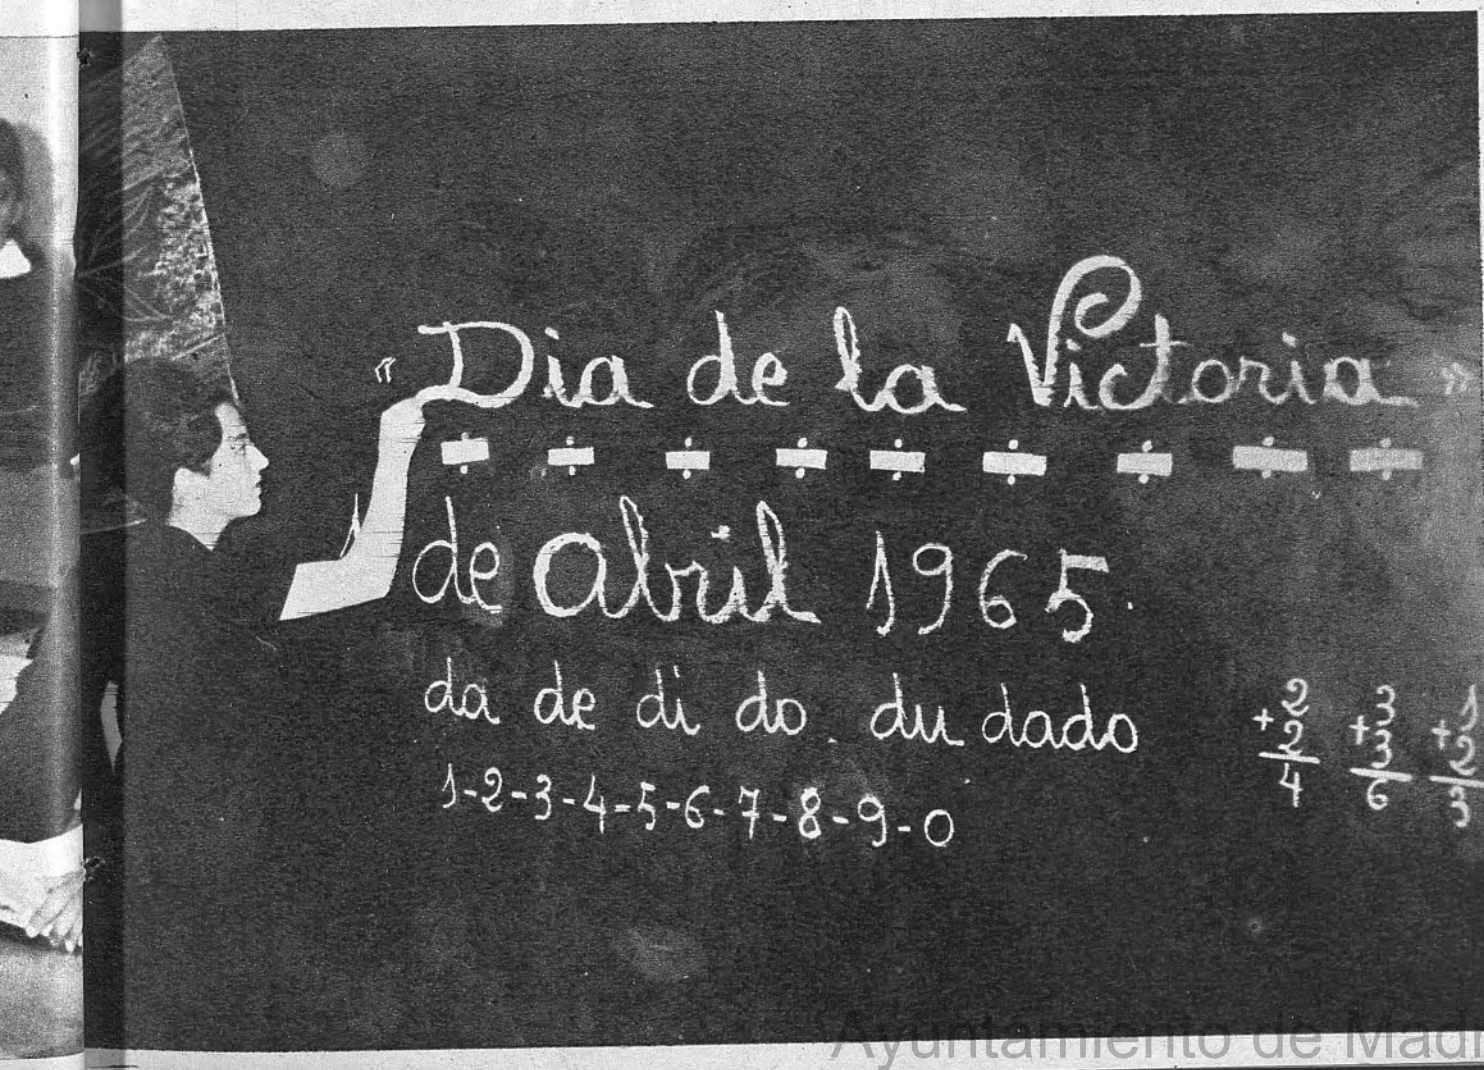 « Dia de la Victoria »
de abril 1965.
da de di do du dado
1-2-3-4-5-6-7-8-9-0
2 + 2 4
3 + 3 6
1 + 2 3
Ayuntamiento de Madr